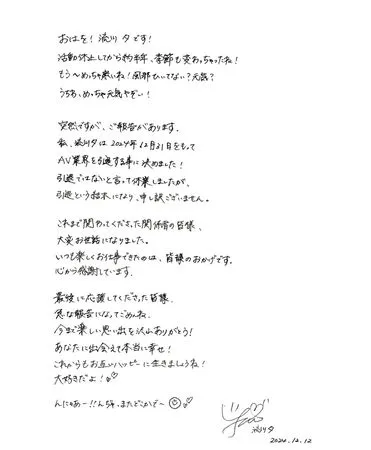 おはを！流川夕です！
活動休止してから約半年、季節も変わっちゃったね！
もう〜めっちゃ寒いね！風邪ひいてない？元気？
うちゎ、めっちゃ元気やぞい！
突然ですが、ご報告があります。
私、流川夕は2024年12月31日をもって
AV業界を引退する事に決めました！
引退ではないと言って休業しましたが、
引退という結末になり、申し訳ございません。
これまで関わってくださった関係者の皆様、
大変お世話になりました。
いつも楽しくお仕事できたのは、皆様のおかげです。
心から感謝しています。
最後に応援してくださった皆様、
急な報告になってごめんね。
今まで楽しい思い出を沢山ありがとう！
あなたに出会えて本当に幸せ！
これからもお互いハッピーに生きましょうね！
大好きだよ！
んにゃあー！！んぢゃ、またどこかで〜
流川夕
2024.12.12